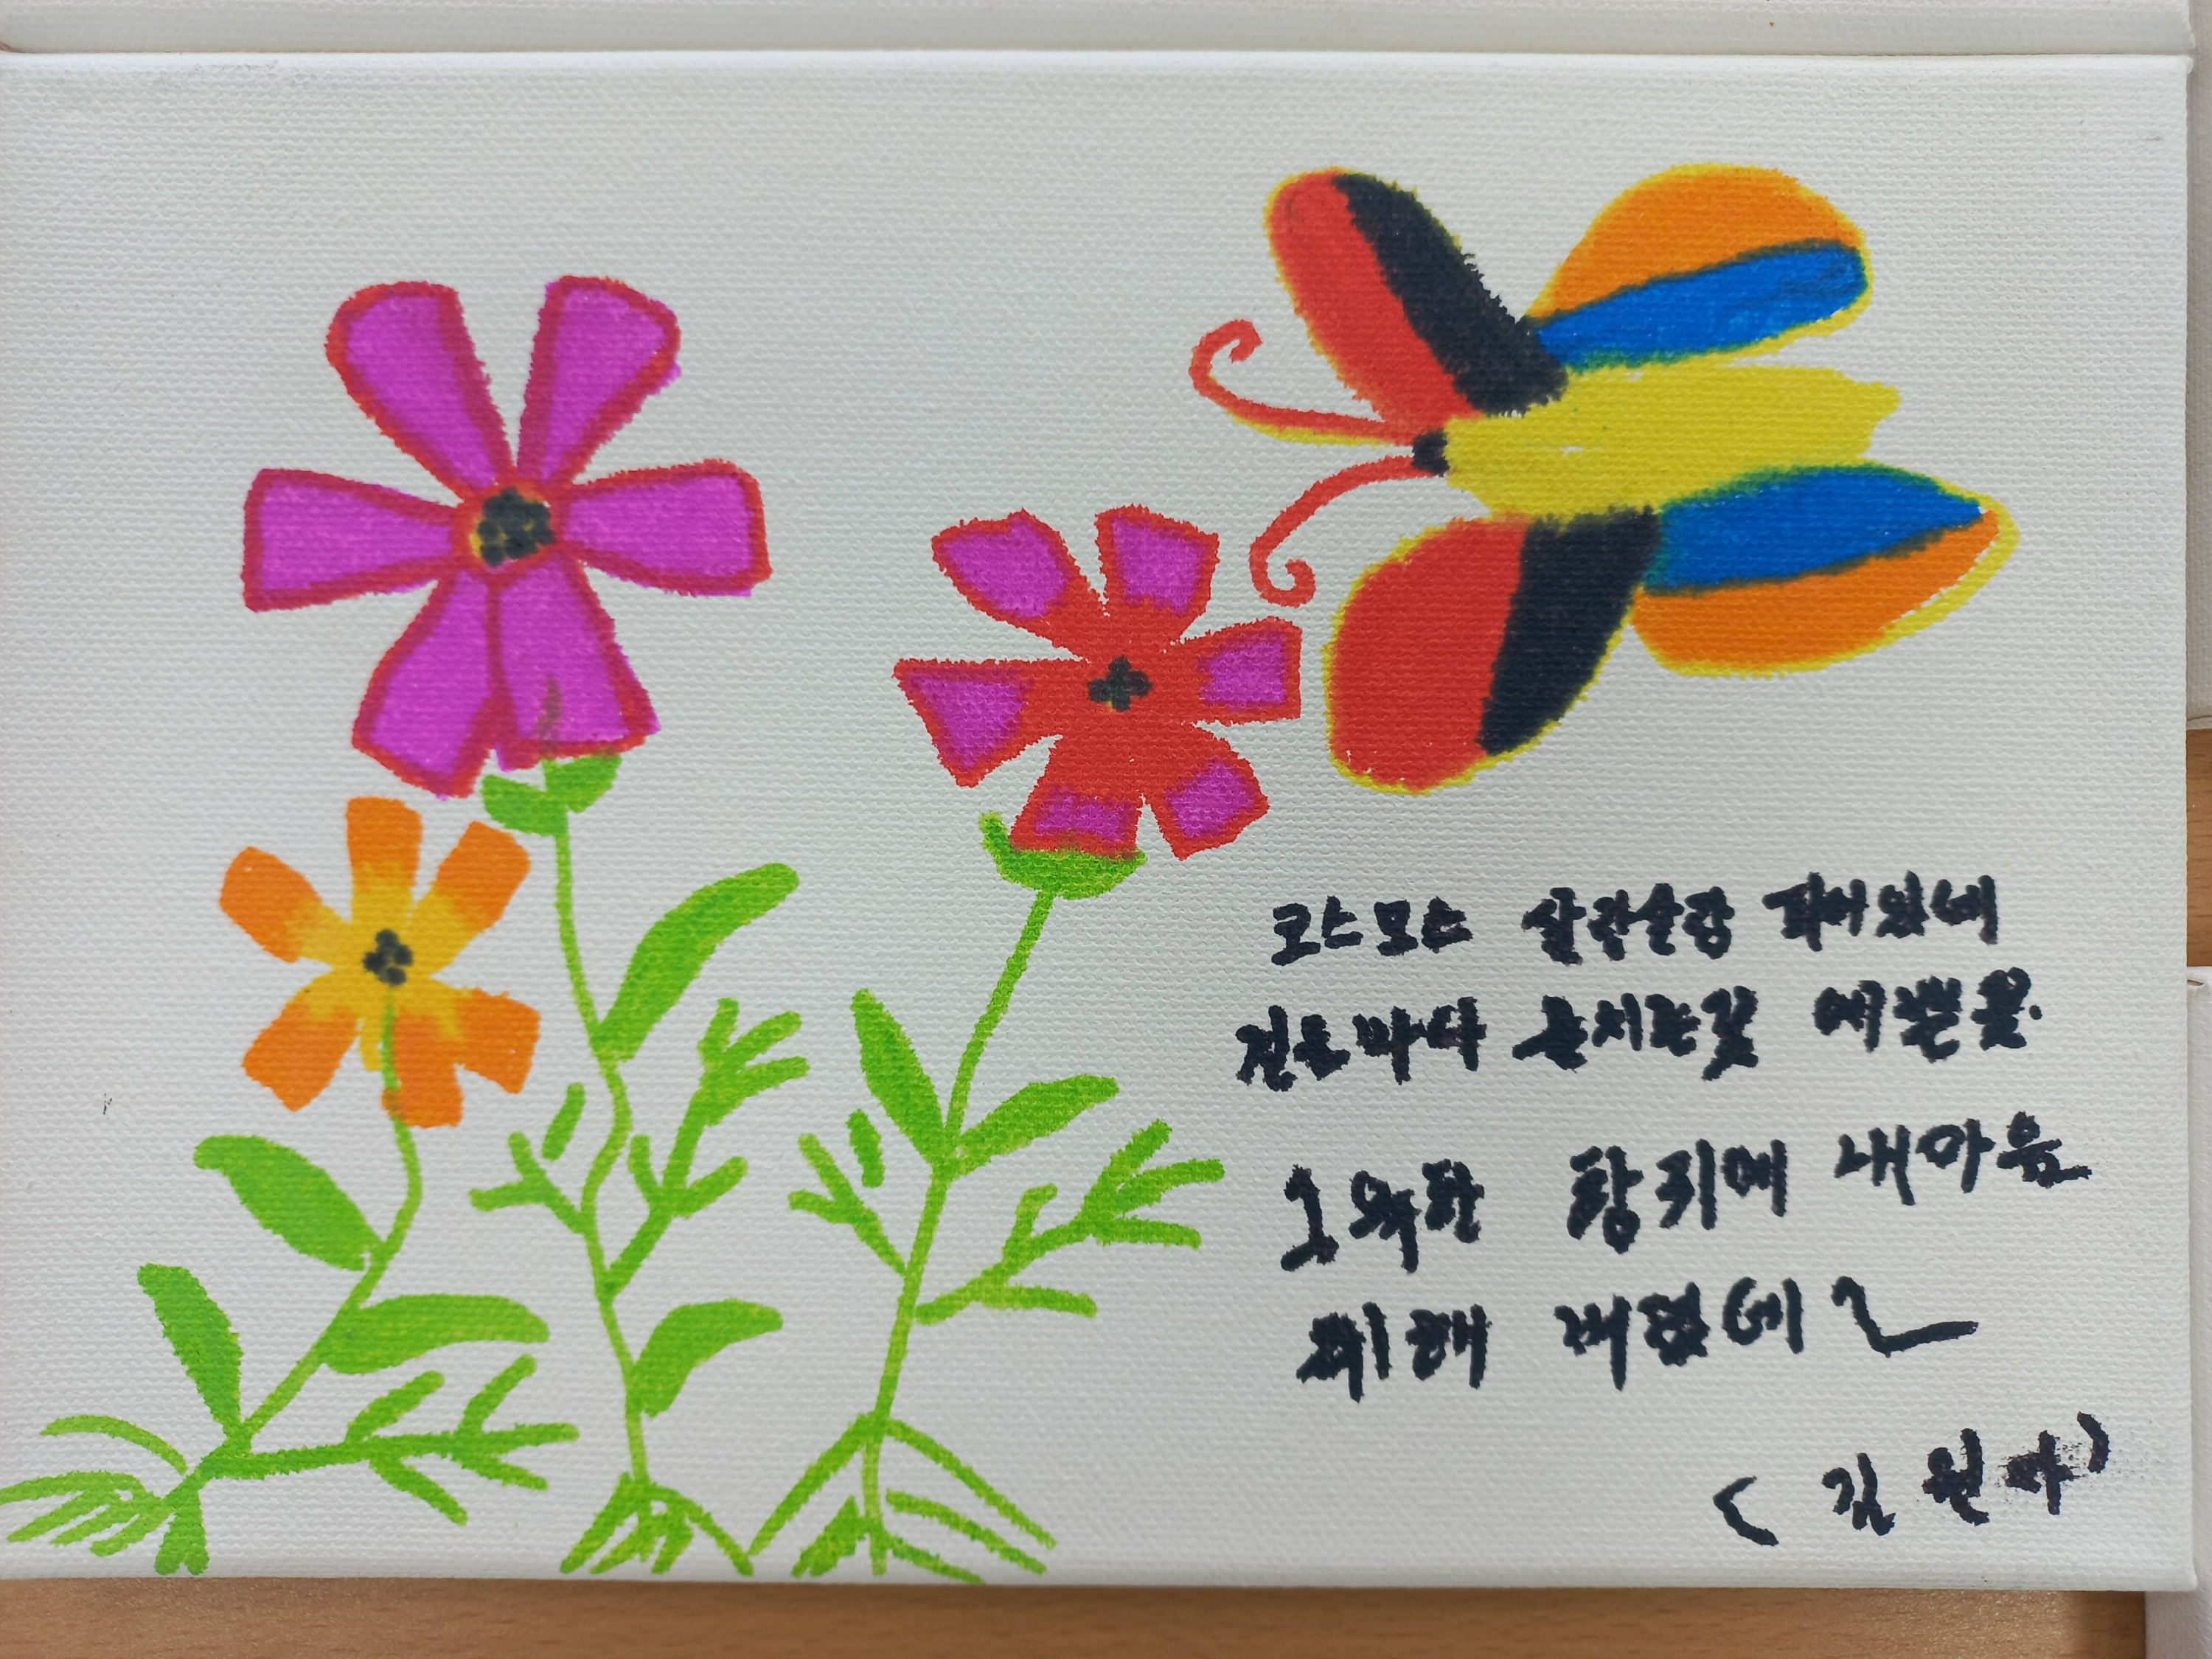 코스모스 살랑살랑 피어있네
걷는마다 눈치는꽃 예쁜꽃.
그윽한 향취에 내마음
취해 버렸네~
(김원자)